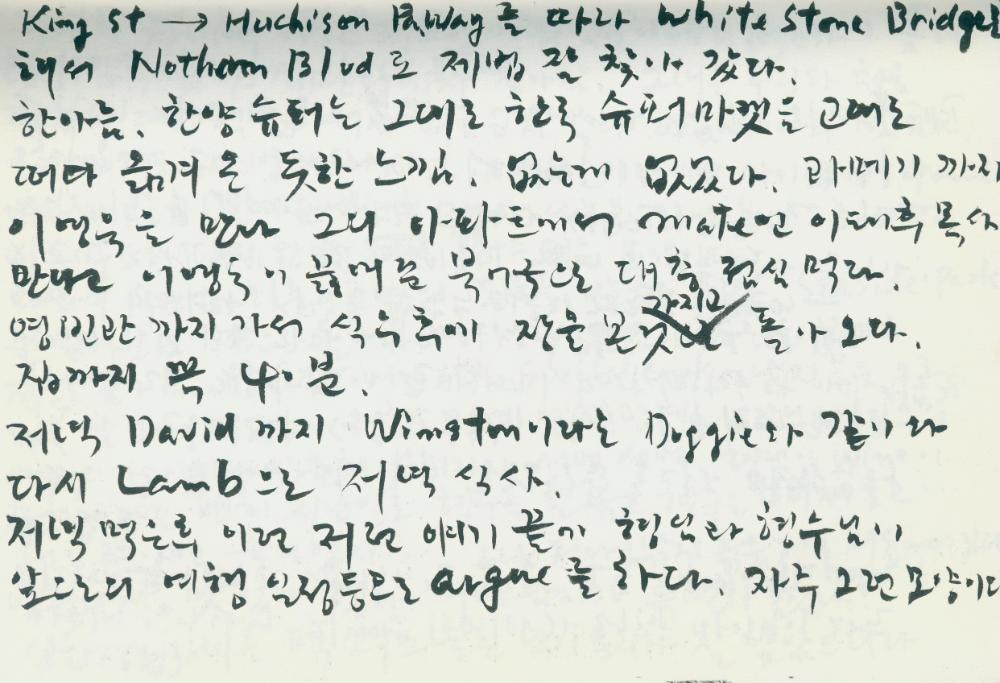 King st → Huchison P.Way를 따라 White Stone Bridge
해서 Nothern Blvd로 제법 잘 찾아 갔다.
한아름, 한양슈퍼는 그대로 한국 슈퍼마켓을 고대로
떠다 옮겨 온 듯한 느낌. 없는게 없었다. 과메기 까지
이명욱을 만나 그의 아파트에서 mate인 이태후 목사
만나고 이명욱이 끓여준 북어국으로 대충 점심 먹다
영빈관 까지 가서 식육후에 장을 본것 가지고 돌아 오다.
집까지 꼭 40분.
저녁 David 까지 Winston이라는 Doggie와 같이 와
다시 Lamb으로 저녁 식사.
저녁 먹은후 이런 저런 이야기 끝에 형님과 형수님이
앞으로의 여행 일정등으로 argue를 하다. 자주 그런 모양이다